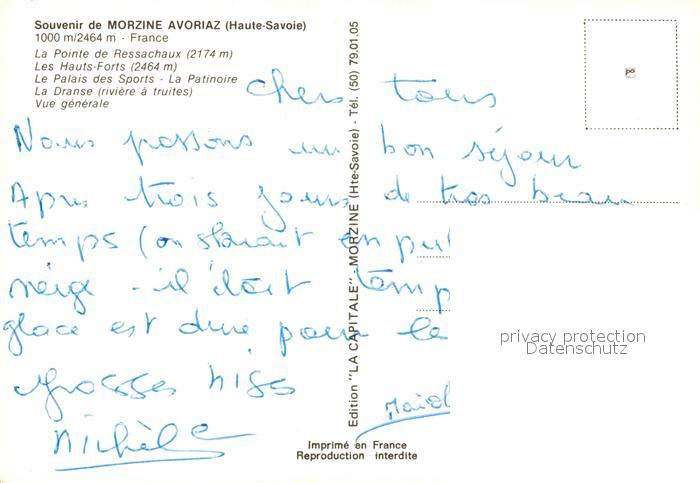 Souvenir de MORZINE AVORIAZ (Haute-Savoie)
1000 m/2464 m - France
La Pointe de Ressachaux (2174 m)
Les Hauts-Forts (2464 m)
Le Palais des Sports - La Patinoire
La Dranse (rivière à truites)
Vue générale
Chers tous
Nous passons un bon séjour
Après trois jours de très beau
temps (on skiait en pul
neige - il était temp
glace est dure pour le
grosses bises
Michèle
Edition "LA CAPITALE" - MORZINE (Hte-Savoie) - Tél. (50) 79.01.05
privacy protection
Datenschutz
Imprimé en France
Reproduction interdite